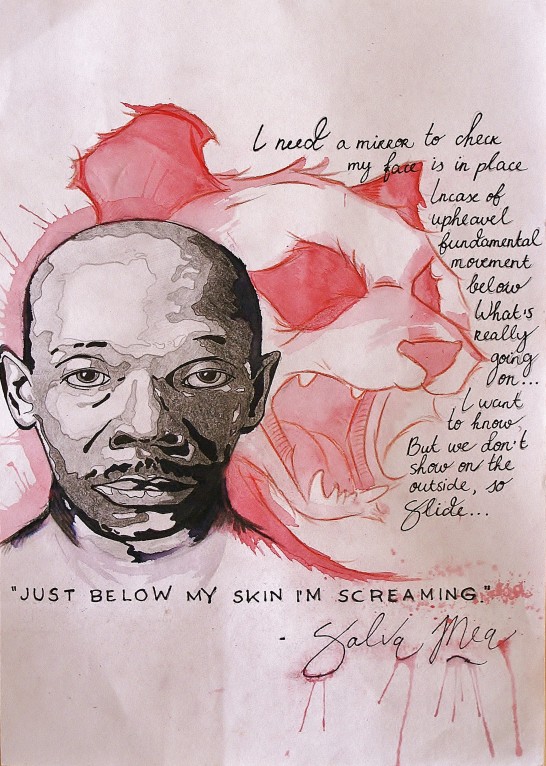 I need a mirror to check
my face is in place
Incase of
upheavel
fundamental
movement
below
What's
really
going
on...
I want
to know
But we don't
show on the
outside, so
Slide...
"JUST BELOW MY SKIN I'M SCREAMING."
- Salva Mea